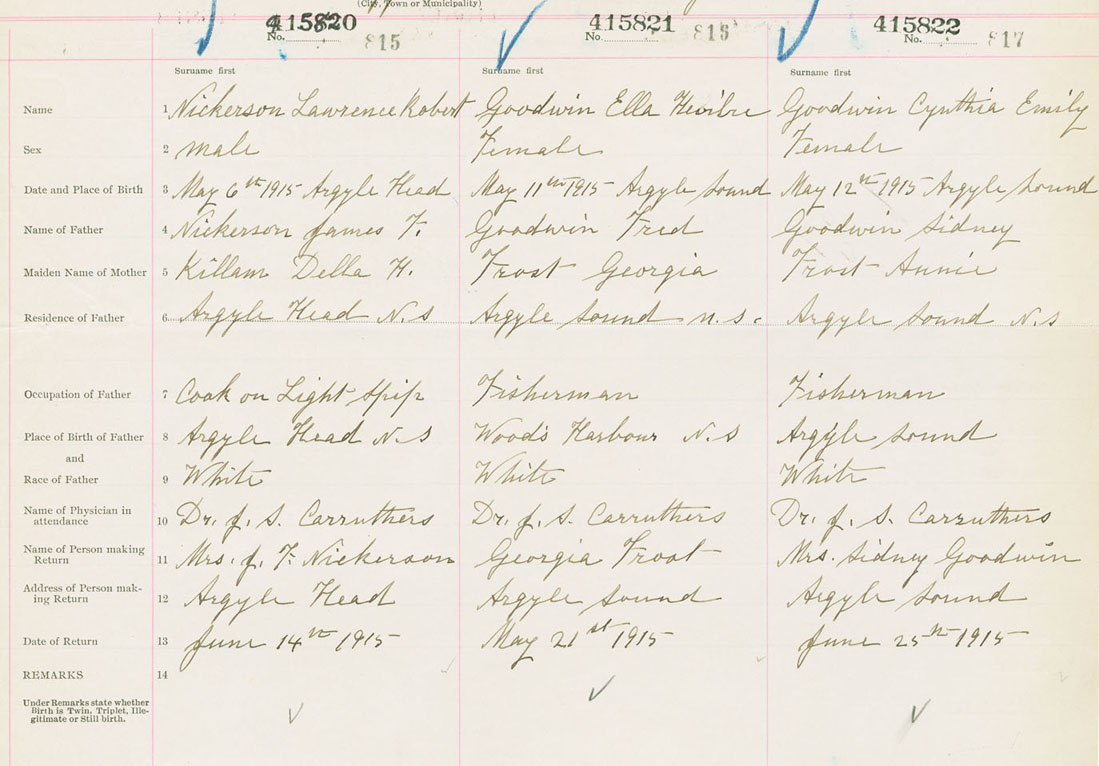 (City, Town or Municipality)
415820 415821 415822
No. 815 No 816 No. 817
Surname first Surname first Surname first
Name 1 Nickerson Lawrence Robert Goodwin Ella Goodwin Cynthia Emily
Sex 2 Male Female Female
Date and Place of Birth 3 May 6th 1915 Argyle Head May 11th 1915 Argyle Sound May 12th 1915 Argyle Sound
Name of Father 4 Nickerson James F. Goodwin Fred Goodwin Sidney
Maiden Name of Mother 5 Killam Della H. Frost Georgia Frost Annie
Residence of Father 6 Argyle Head N.S Argyle Sound N.S. Argyle Sound N.S
Occupation of Father 7 Cook on Light Ship Fisherman Fisherman
Place of Birth of Father 8 Argyle Head N.S Wood's Harbour N.S Argyle Sound
and
Race of Father 9 White White White
Name of Physician in
attendance 10 Dr. J. S. Carruthers Dr. J. S. Carruthers Dr. J. S. Carruthers
Name of Person making
Return 11 Mrs. J. F. Nickerson Georgia Frost Mrs. Sidney Goodwin
Address of Person mak-
ing Return 12 Argyle Head Argyle Sound Argyle Sound
Date of Return 13 June 14th 1915 May 21st 1915 June 25th 1915
REMARKS 14
Under Remarks state whether
Birth is Twin, Triplet, Ille-
gitimate or Still birth.